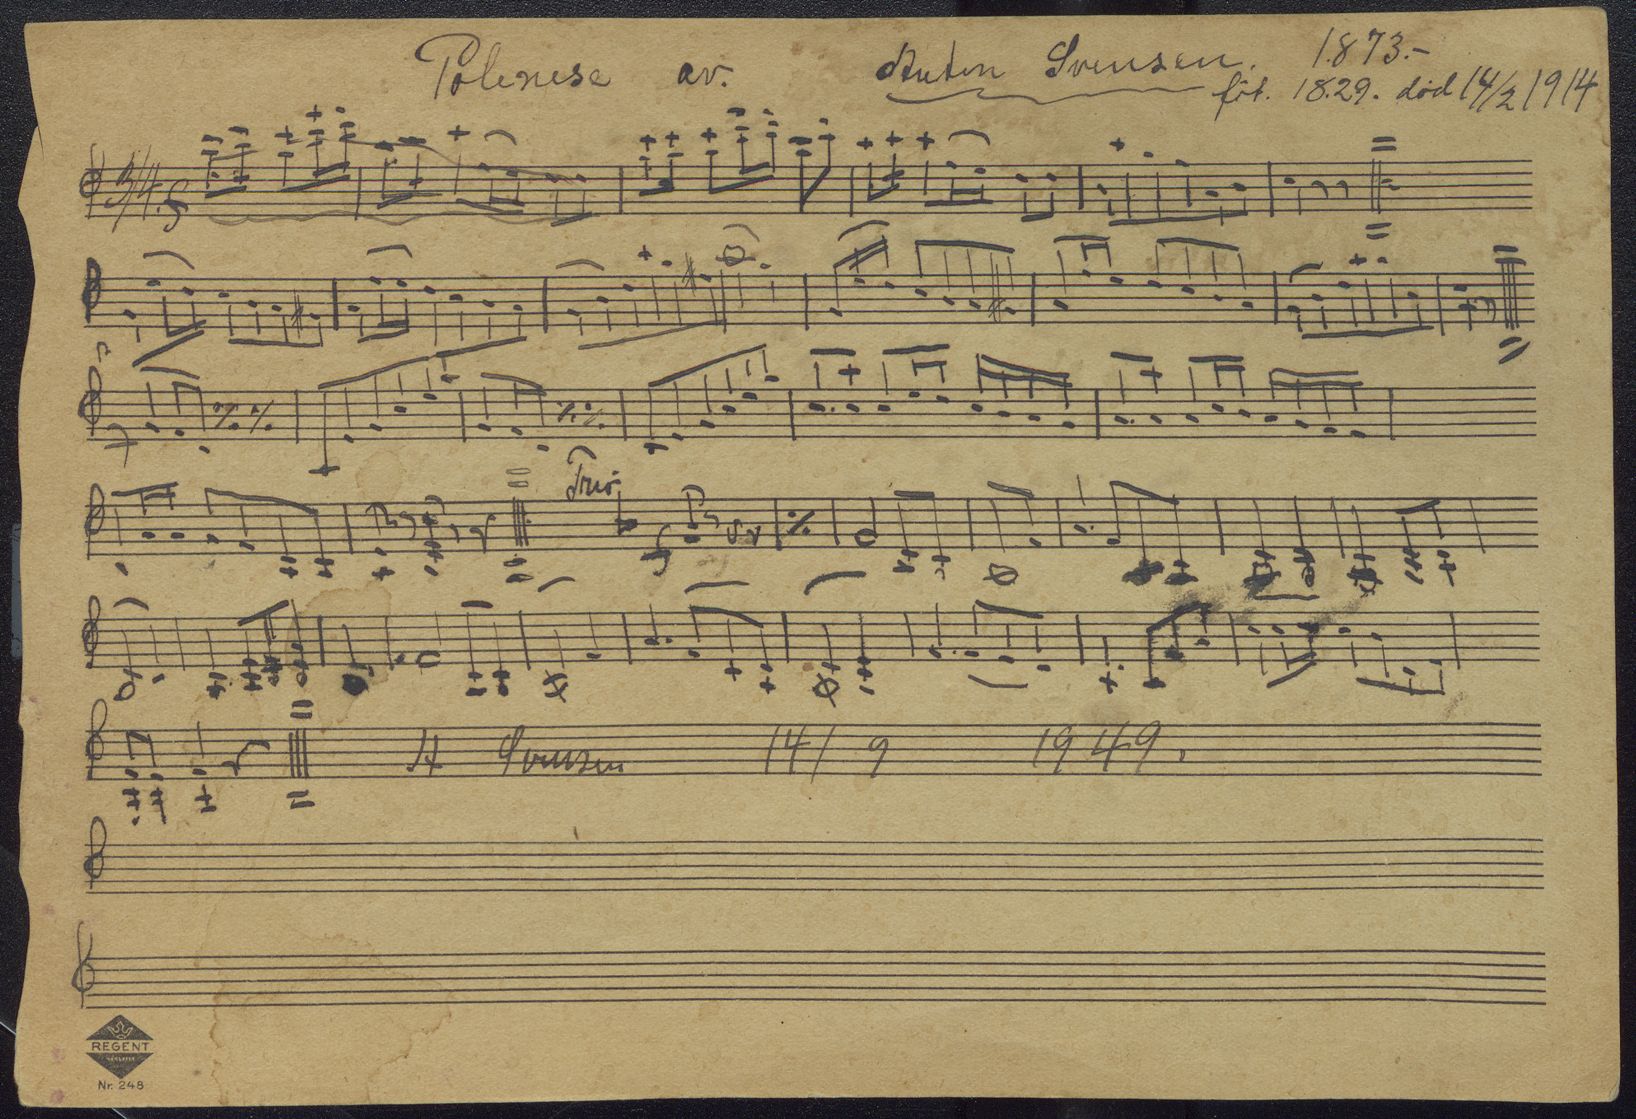 Polenese av. Anton Svensen. 1873.-
föt. 1829. död 14/2 1914
3/4
Trio
A Svensen 14/9 1949.
REGENT
Nr. 248